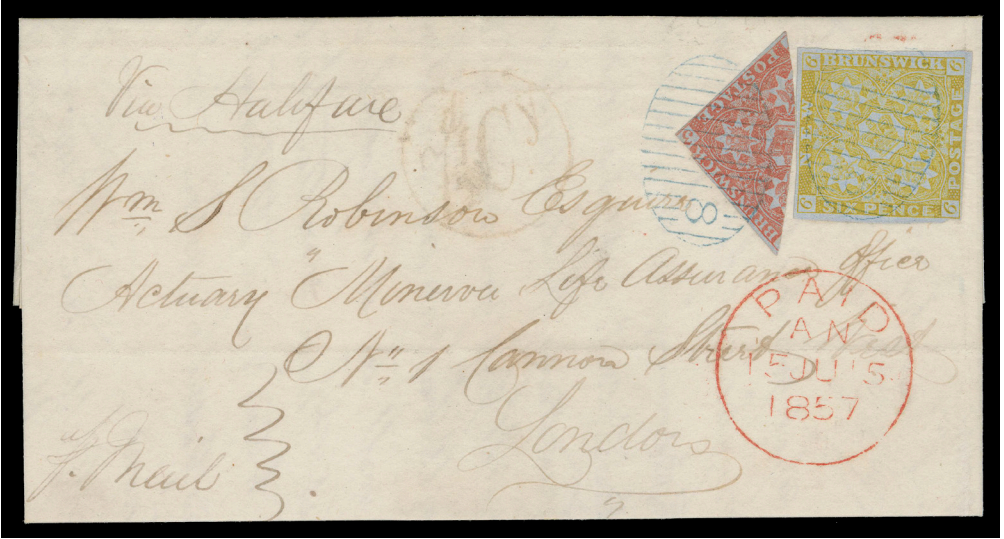 Via Halifax
Wm S Robinson Esquire
Actuary "Minerva Life Assurance Office
No 1 Cannon Street West
London
p. Mail
POSTAGE
BRUNSWICK
8
BRUNSWICK
NEW
POSTAGE
SIX PENCE
6
6
6
6
PAID
AN
15 JU 15
1857